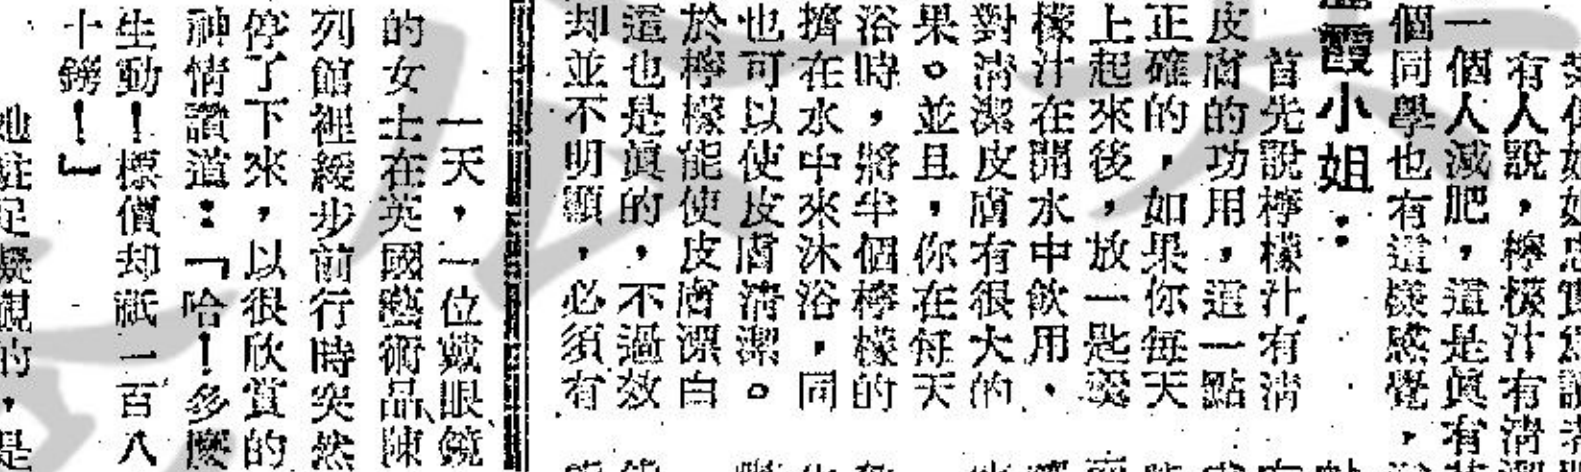 有人說，檸檬汁有清
一個人減肥，這是眞有
個同學也有這樣感覺，
霞小姐：
首先說檸檬汁有清
皮膚的功用，這一點
正確的，如果你每天
上起來後，放一匙羮
檬汁在開水中飲用，
對清潔皮膚有很大的
果。並且，你在每天
浴時，將半個檸檬的
擠在水中來沐浴，同
也可以使皮膚清潔。
於檸檬能使皮膚漂白
這也是眞的，不過效
却並不明顯，必須有
一天，一位戴眼鏡
的女士在英國藝術品陳
列館裡緩步前行時突然
停了下來，以很欣賞的
神情讚道：「哈！多麼
生動！標價却祇一百八
十鎊！」
她駐足凝視的，是